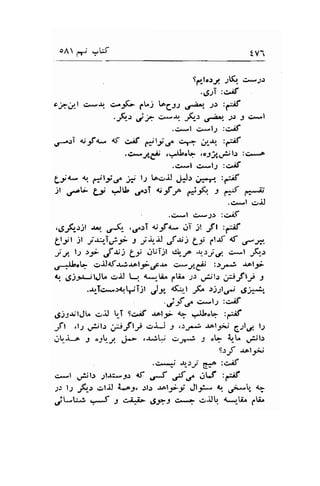 ٤٧٦ کتاب نهم ٥٨١
درست بکار برده‌ایم؟
گفت: آری.
گفتم: در بعضی روح‌ها زمام حکومت بدست این‌جزء
و در دست بعضی دیگر بدست جزئی دیگر.
گفت: راست است.
گفتم: بدین جهت می‌توانیم گفت که سه‌گونه آدمی
هست: دانش‌پژوه، جاه‌طلب، نفع‌پرست.
گفت: راست است.
گفتم: بهمین دلیل لذتها را نیز می‌توانیم به سه‌نوع
تقسیم کنیم و بگوئیم هرگونه آدمی طالب نوع خاصی از
لذت است.
گفت: درست است.
گفتم: اگر از آن سه‌گونه آدمی، یکی بعد ازدیگری،
بپرسی که کدام نوع زندگی لذیذتر و خوش‌آیندتر از انواع
دیگر است بی‌تردید هریک ازآنان نوع زندگی خود را برتر
خواهد شمرد: نفع‌پرست مدعی‌خواهدشدکه‌لذت جاه‌طلبی
و فراگرفتن دانش در مقام مقایسه با لذت مال‌اندوزی به
پشیزی نمی‌ارزد مگر اینکه پولی ازآنهابدست‌آید.
گفت: راست می‌گوئی.
گفتم: جاه‌طلب چه خواهد گفت؟ آیا لذت مال‌اندوزی
را بی‌ارج نخواهد شمرد، و لذت فراگرفتن دانش را، اگر
دانش مایهٔ جاه و شهرت نباشد، حمل بریاوه و هذیان
نخواهد کرد؟
گفت: هیچ تردید نیست.
گفتم: گمان می‌کنی کسی که دوستدار دانش است
چه پاسخی به سئوال توخواهد داد، وهمهٔ لذات دیگر را در
مقام مقایسه بالذت جست وجوی حقیقت و کسب شناسائی